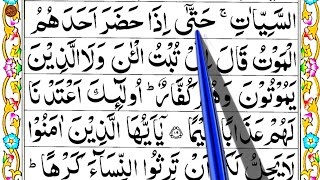 السَّيِّاٰتِ ۚ حَتّٰۤى اِذَا حَضَرَ اَحَدَهُمُ
الْمَوْتُ قَالَ تُبْتُ الْـٰٔنَ وَلَا الَّذِيْنَ
يَمُوْتُوْنَ وَهُمْ كُفَّارٌ ؕ اُولٰٓئِكَ اَعْتَدْنَا
لَهُمْ عَذَابًا يٰۤاَيُّهَا الَّذِيْنَ اٰمَنُوْا
لَا يَحِلُّ اَنْ تَرِثُوا النِّسَآءَ كَرْهًا ؕ